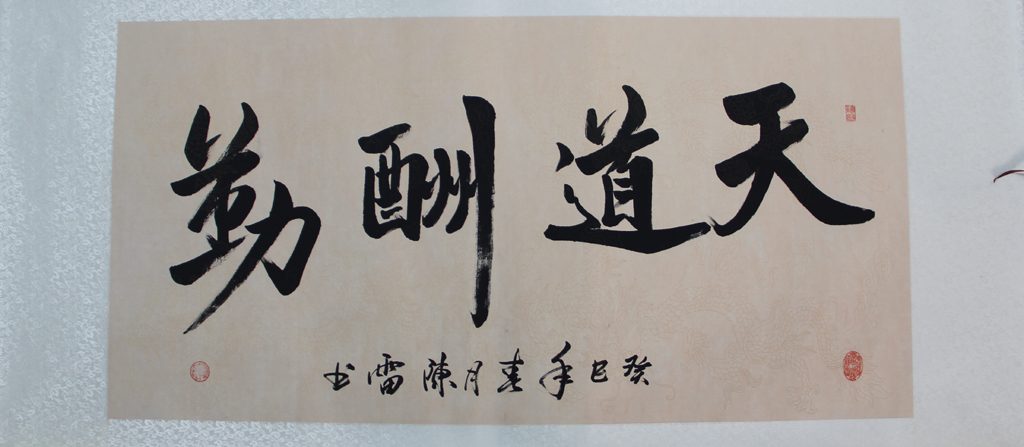 天道酬勤
癸巳年春月陈雷书